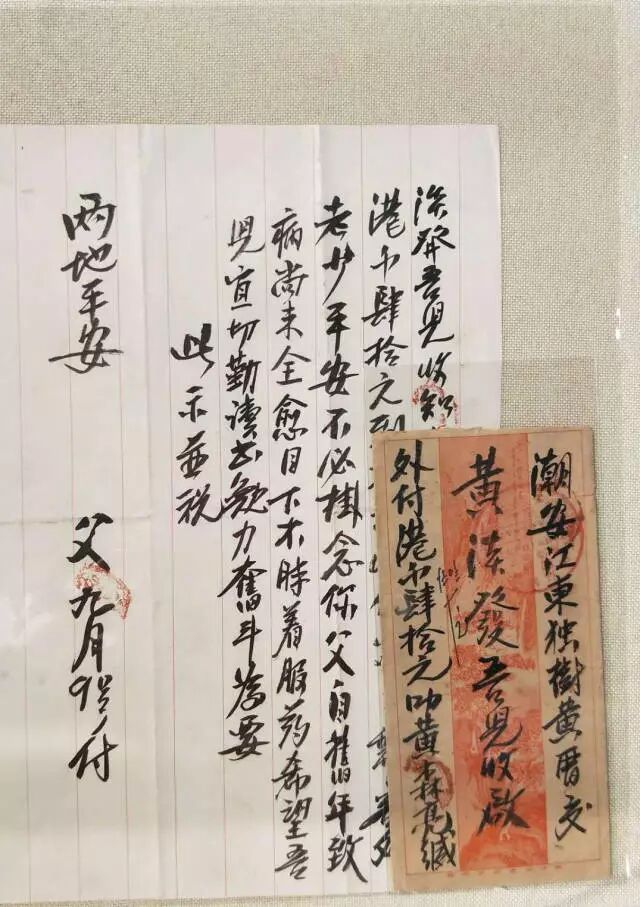 淡發吾兒收知
港币肆拾元到
老少平安不必掛念你父自舊年致
病尚未全愈目下不時着服药希望吾
兒宜切勤讀书勉力奮斗為要
此示並祝
两地平安
父九月9号付
潮安江東独樹黄厝交
黄淡發吾兒收啟
外付港币肆拾元叻黄森亮缄